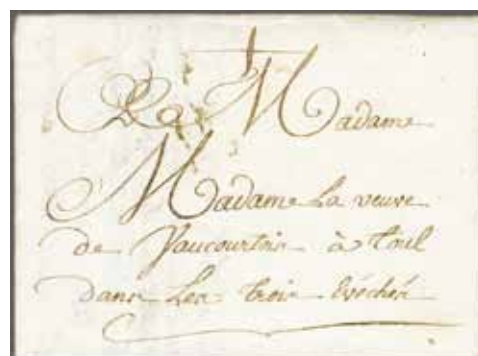 A Madame
Madame La veuve
de Vaucourtois à Toul
dans Les trois Evéchés